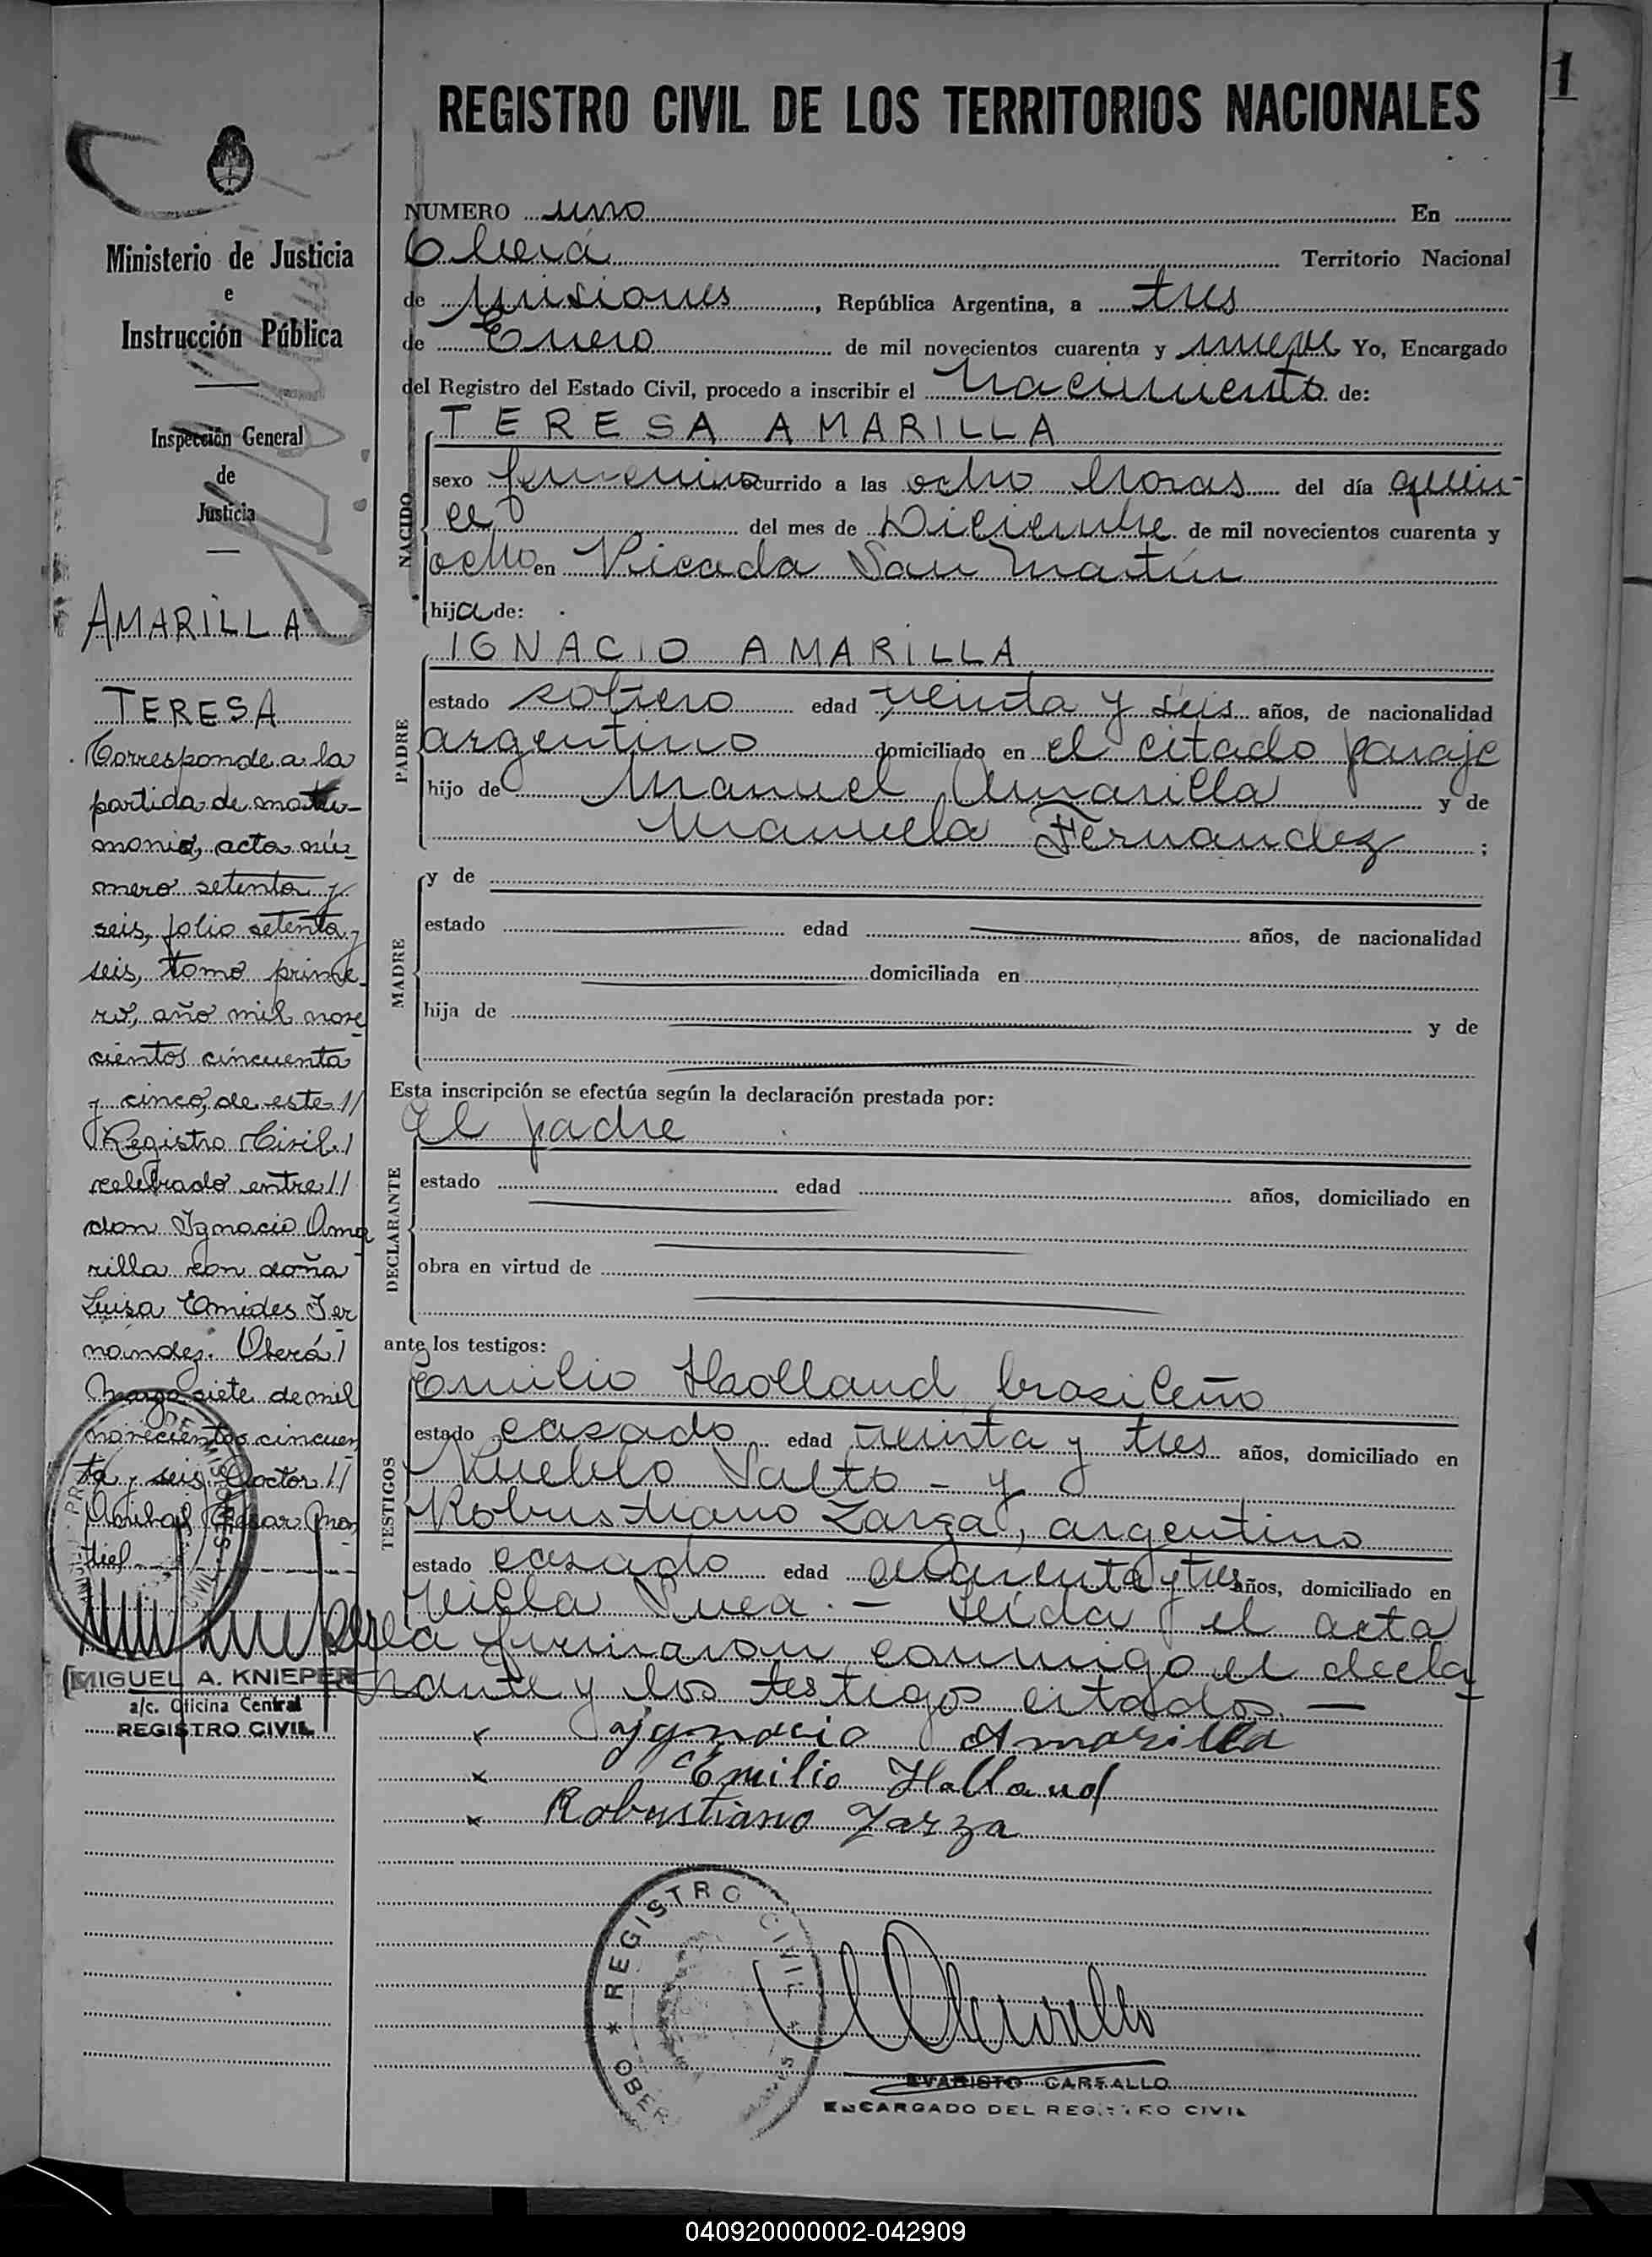 1
REGISTRO CIVIL DE LOS TERRITORIOS NACIONALES
Ministerio de Justicia
e
Instrucción Pública
Inspección General
de
Justicia
AMARILLA
TERESA
Corresponde a la
partida de matri-
monio, acta nú-
mero setenta y
seis, folio setenta y
seis, tomo prime-
ro, año mil nove-
cientos cincuenta
y cinco, de este //
Registro Civil /
celebrado entre //
don Ignacio Ama
rilla con doña
Luisa Emides Fer
nández. Oberá /
Marzo siete de mil
novecientos cincuen
ta y seis. Doctor //
Anibal Cesar
MIGUEL A. KNIEPER
a/c. Oficina Central
REGISTRO CIVIL
NUMERO uno En
Oberá Territorio Nacional
de Misiones, República Argentina, a tres
de Enero de mil novecientos cuarenta y nueve Yo, Encargado
del Registro del Estado Civil, procedo a inscribir el nacimiento de:
NACIDO
TERESA AMARILLA
sexo femenino ocurrido a las ocho horas del día quin-
ce del mes de Diciembre de mil novecientos cuarenta y
ocho en Picada San Martín
hija de:
PADRE
IGNACIO AMARILLA
estado soltero edad treinta y seis años, de nacionalidad
argentino domiciliado en el citado paraje
hijo de Manuel Amarilla y de
Manuela Fernandez ;
MADRE
y de
estado edad años, de nacionalidad
domiciliada en
hija de y de
Esta inscripción se efectúa según la declaración prestada por:
DECLARANTE
El padre
estado edad años, domiciliado en
obra en virtud de
ante los testigos:
TESTIGOS
Emilio Holland brasileño
estado casado edad treinta y tres años, domiciliado en
Pueblo Salto - y
Robustiano Zarza, argentino
estado casado edad cuarenta y tres años, domiciliado en
Villa Svea. - Leída el acta
firmaron conmigo el decla-
rante y los testigos citados. —
x Ygnacio Amarilla
x Emilio Holland
x Robustiano Zarza
REGISTRO CIVIL
OBER
EVARISTO CARFALLO
ENCARGADO DEL REGISTRO CIVIL
040920000002-042909